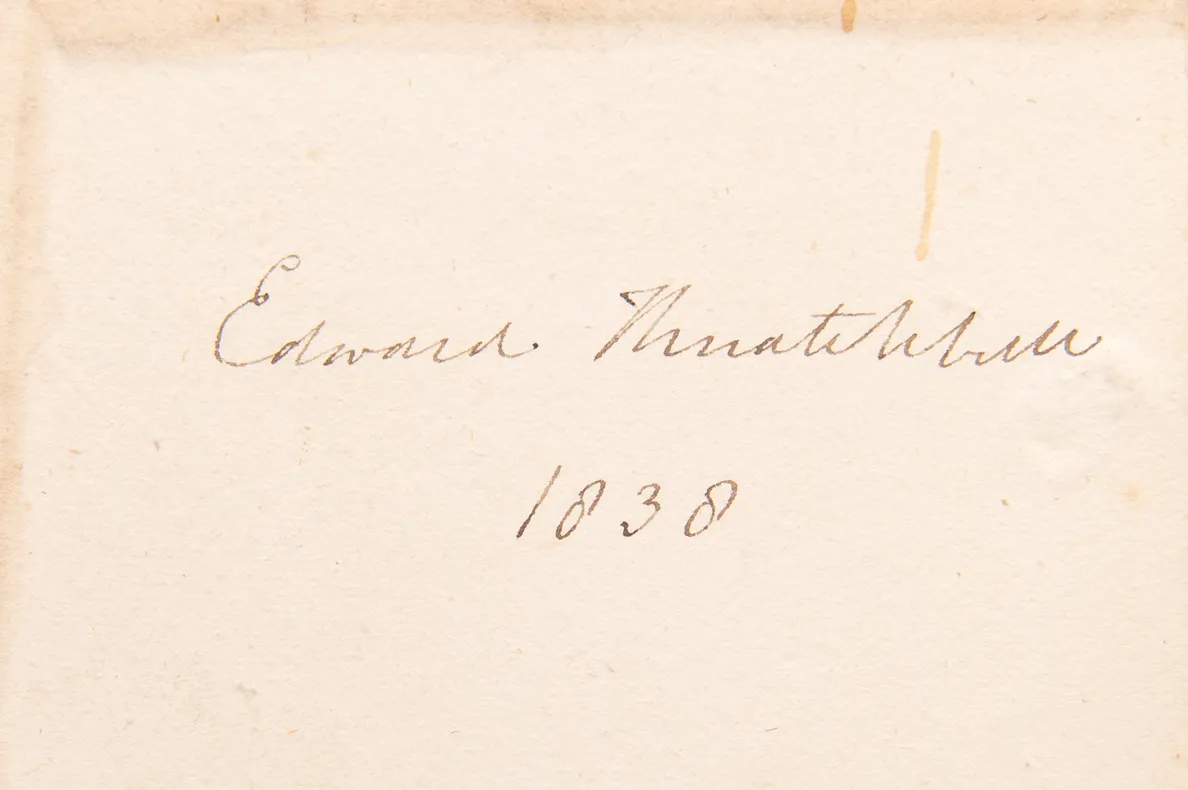 Edward Knatchbull
1838